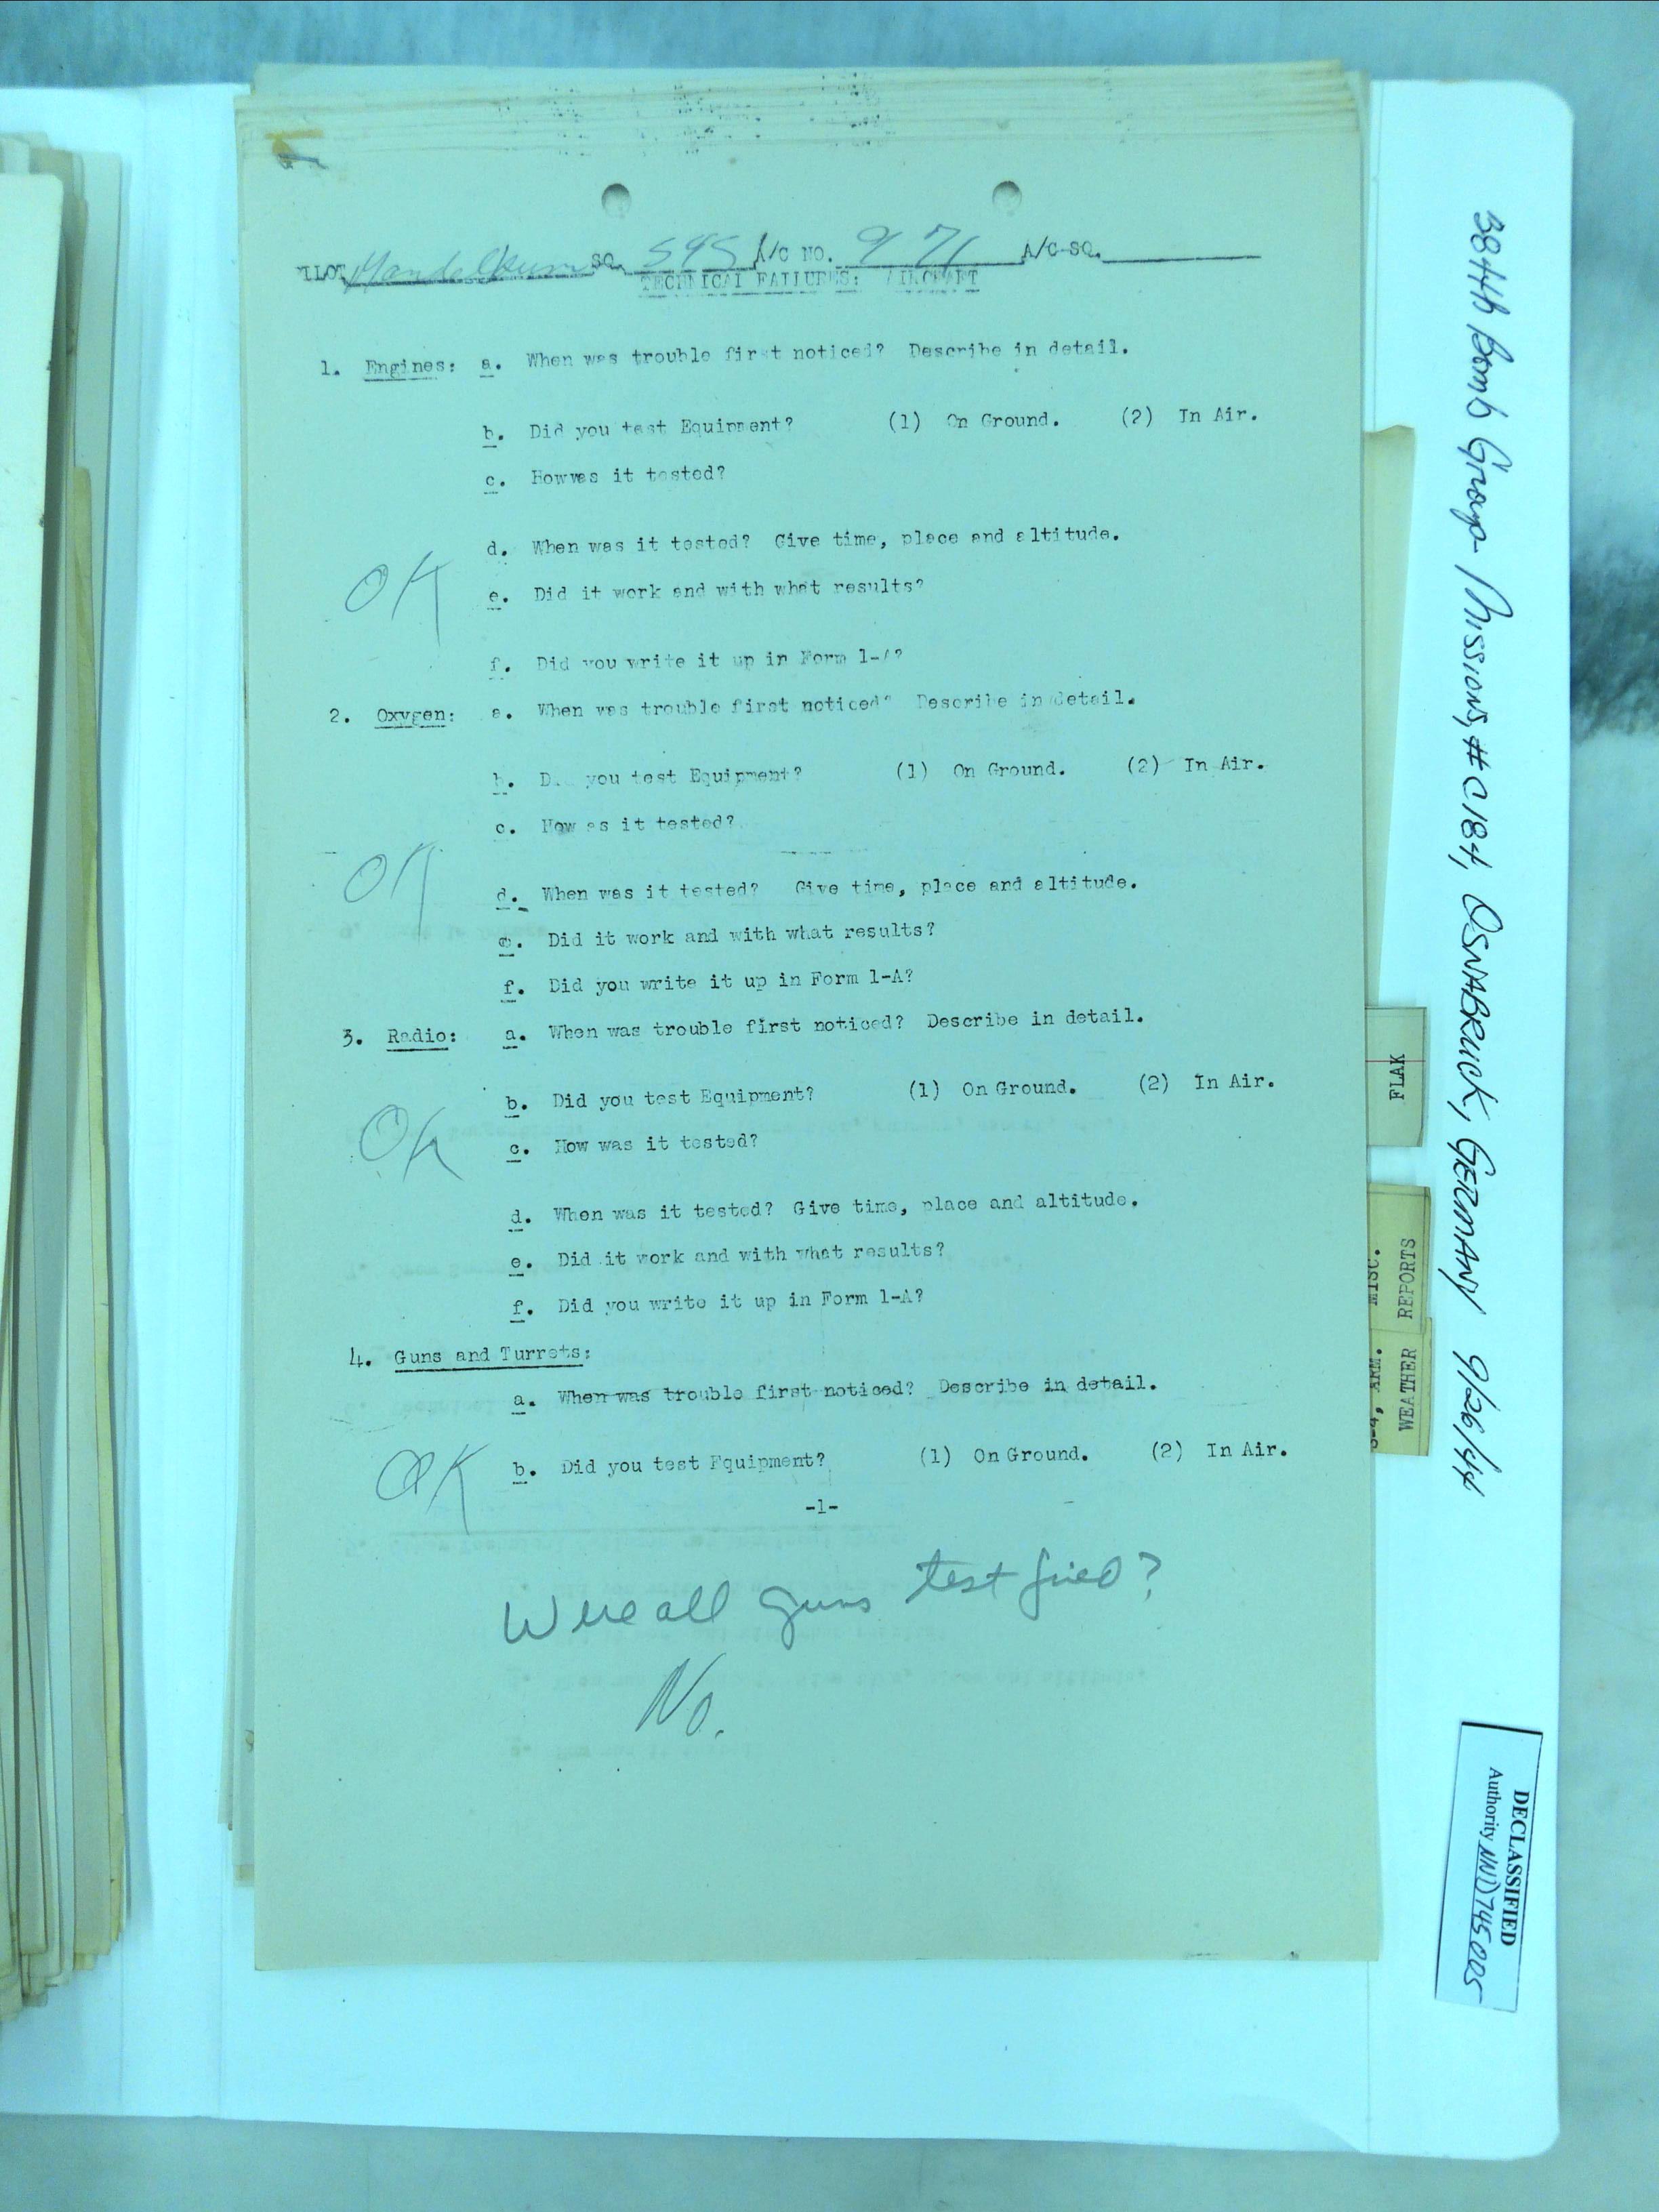 SQ. 545 A/C NO. 971 A/C-SQ.
TECHNICAL FAILURES: AIRCRAFT
1. Engines: a. When was trouble first noticed? Describe in detail.
b. Did you test Equipment? (1) On Ground. (2) In Air.
c. Howwas it tested?
d. When was it tested? Give time, place and altitude.
OK
e. Did it work and with what results?
f. Did you write it up in Form 1-A?
2. Oxygen: a. When was trouble first noticed? Describe in detail.
b. D you test Equipment? (1) On Ground. (2) In Air.
c. How as it tested?
OK
d. When was it tested? Give time, place and altitude.
e. Did it work and with what results?
f. Did you write it up in Form 1-A?
3. Radio: a. When was trouble first noticed? Describe in detail.
b. Did you test Equipment? (1) On Ground. (2) In Air.
OK
c. How was it tested?
d. When was it tested? Give time, place and altitude.
e. Did it work and with what results?
f. Did you write it up in Form 1-A?
4. Guns and Turrets:
a. When was trouble first noticed? Describe in detail.
OK
b. Did you test Equipment? (1) On Ground. (2) In Air.
-1-
Were all guns test fired?
No.
FLAK
MISC. REPORTS
ARM. WEATHER
384th Bomb Group Missions, #C184, OSNABRUCK, GERMANY 9/26/44
DECLASSIFIED
Authority NND745005